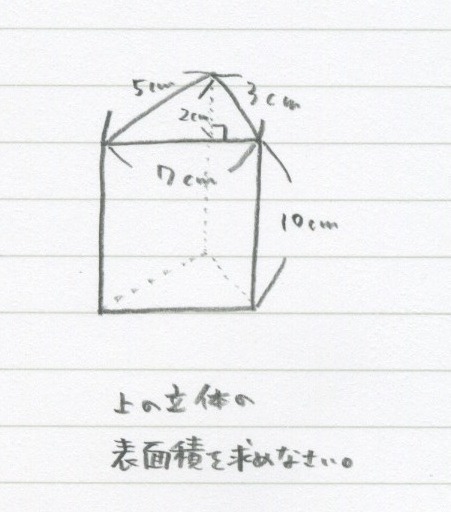 5cm
3cm
2cm
7cm
10cm
上の立体の
表面積を求めなさい。